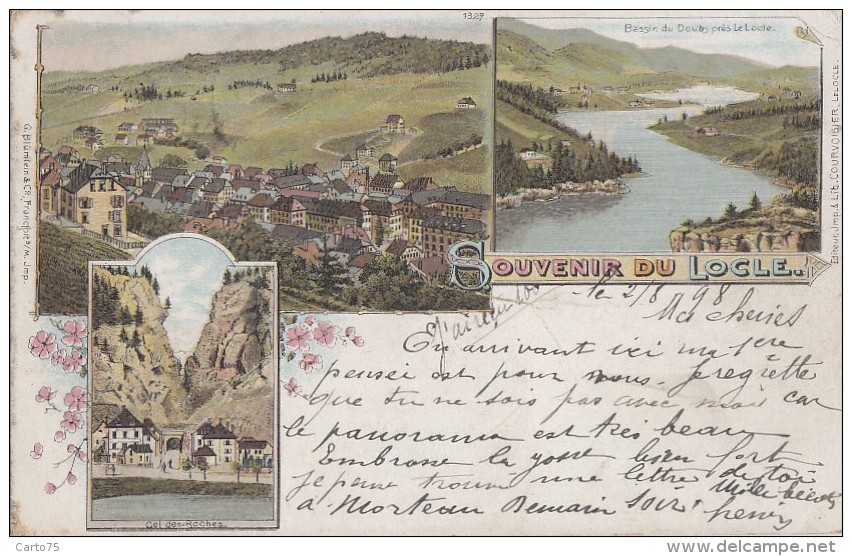 1327
Bassin du Doubs près Le Locle.
G. Blümlein & Co., Francfort s/m. Jmp.
Editeur, Jmp. & Lit. COURVOISIER, LELOCLE.
SOUVENIR DU LOCLE.
Col des Roches.
le 2/8 98
Ma cheries
En arrivant ici ma 1ere
pensei est pour vous. Je regrette
que tu ne sois pas avec moi car
le panorama est très beau
Embrasse la gosse bien fort
je pense trouver une lettre de toi
à Morteau Demain soir
Mille
henri
Carto75
www.delcampe.net